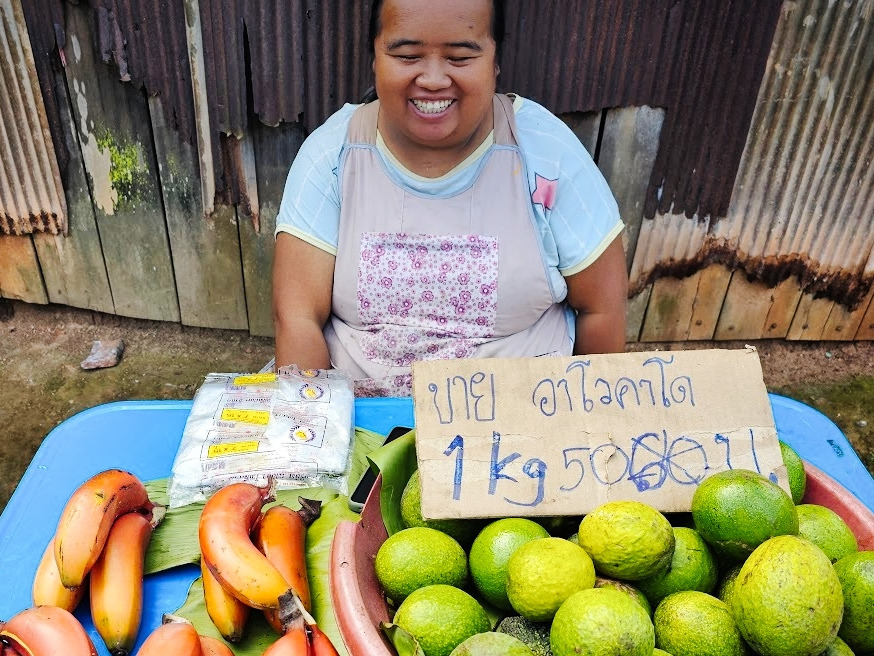 ขาย อาโวคาโด
1 kg 50 บ.